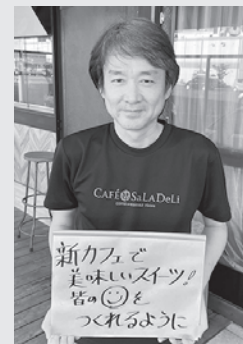 CAFÉ SaLaDeLi
新カフェで
美味しいスイーツ!
皆の☺を
つくれるように